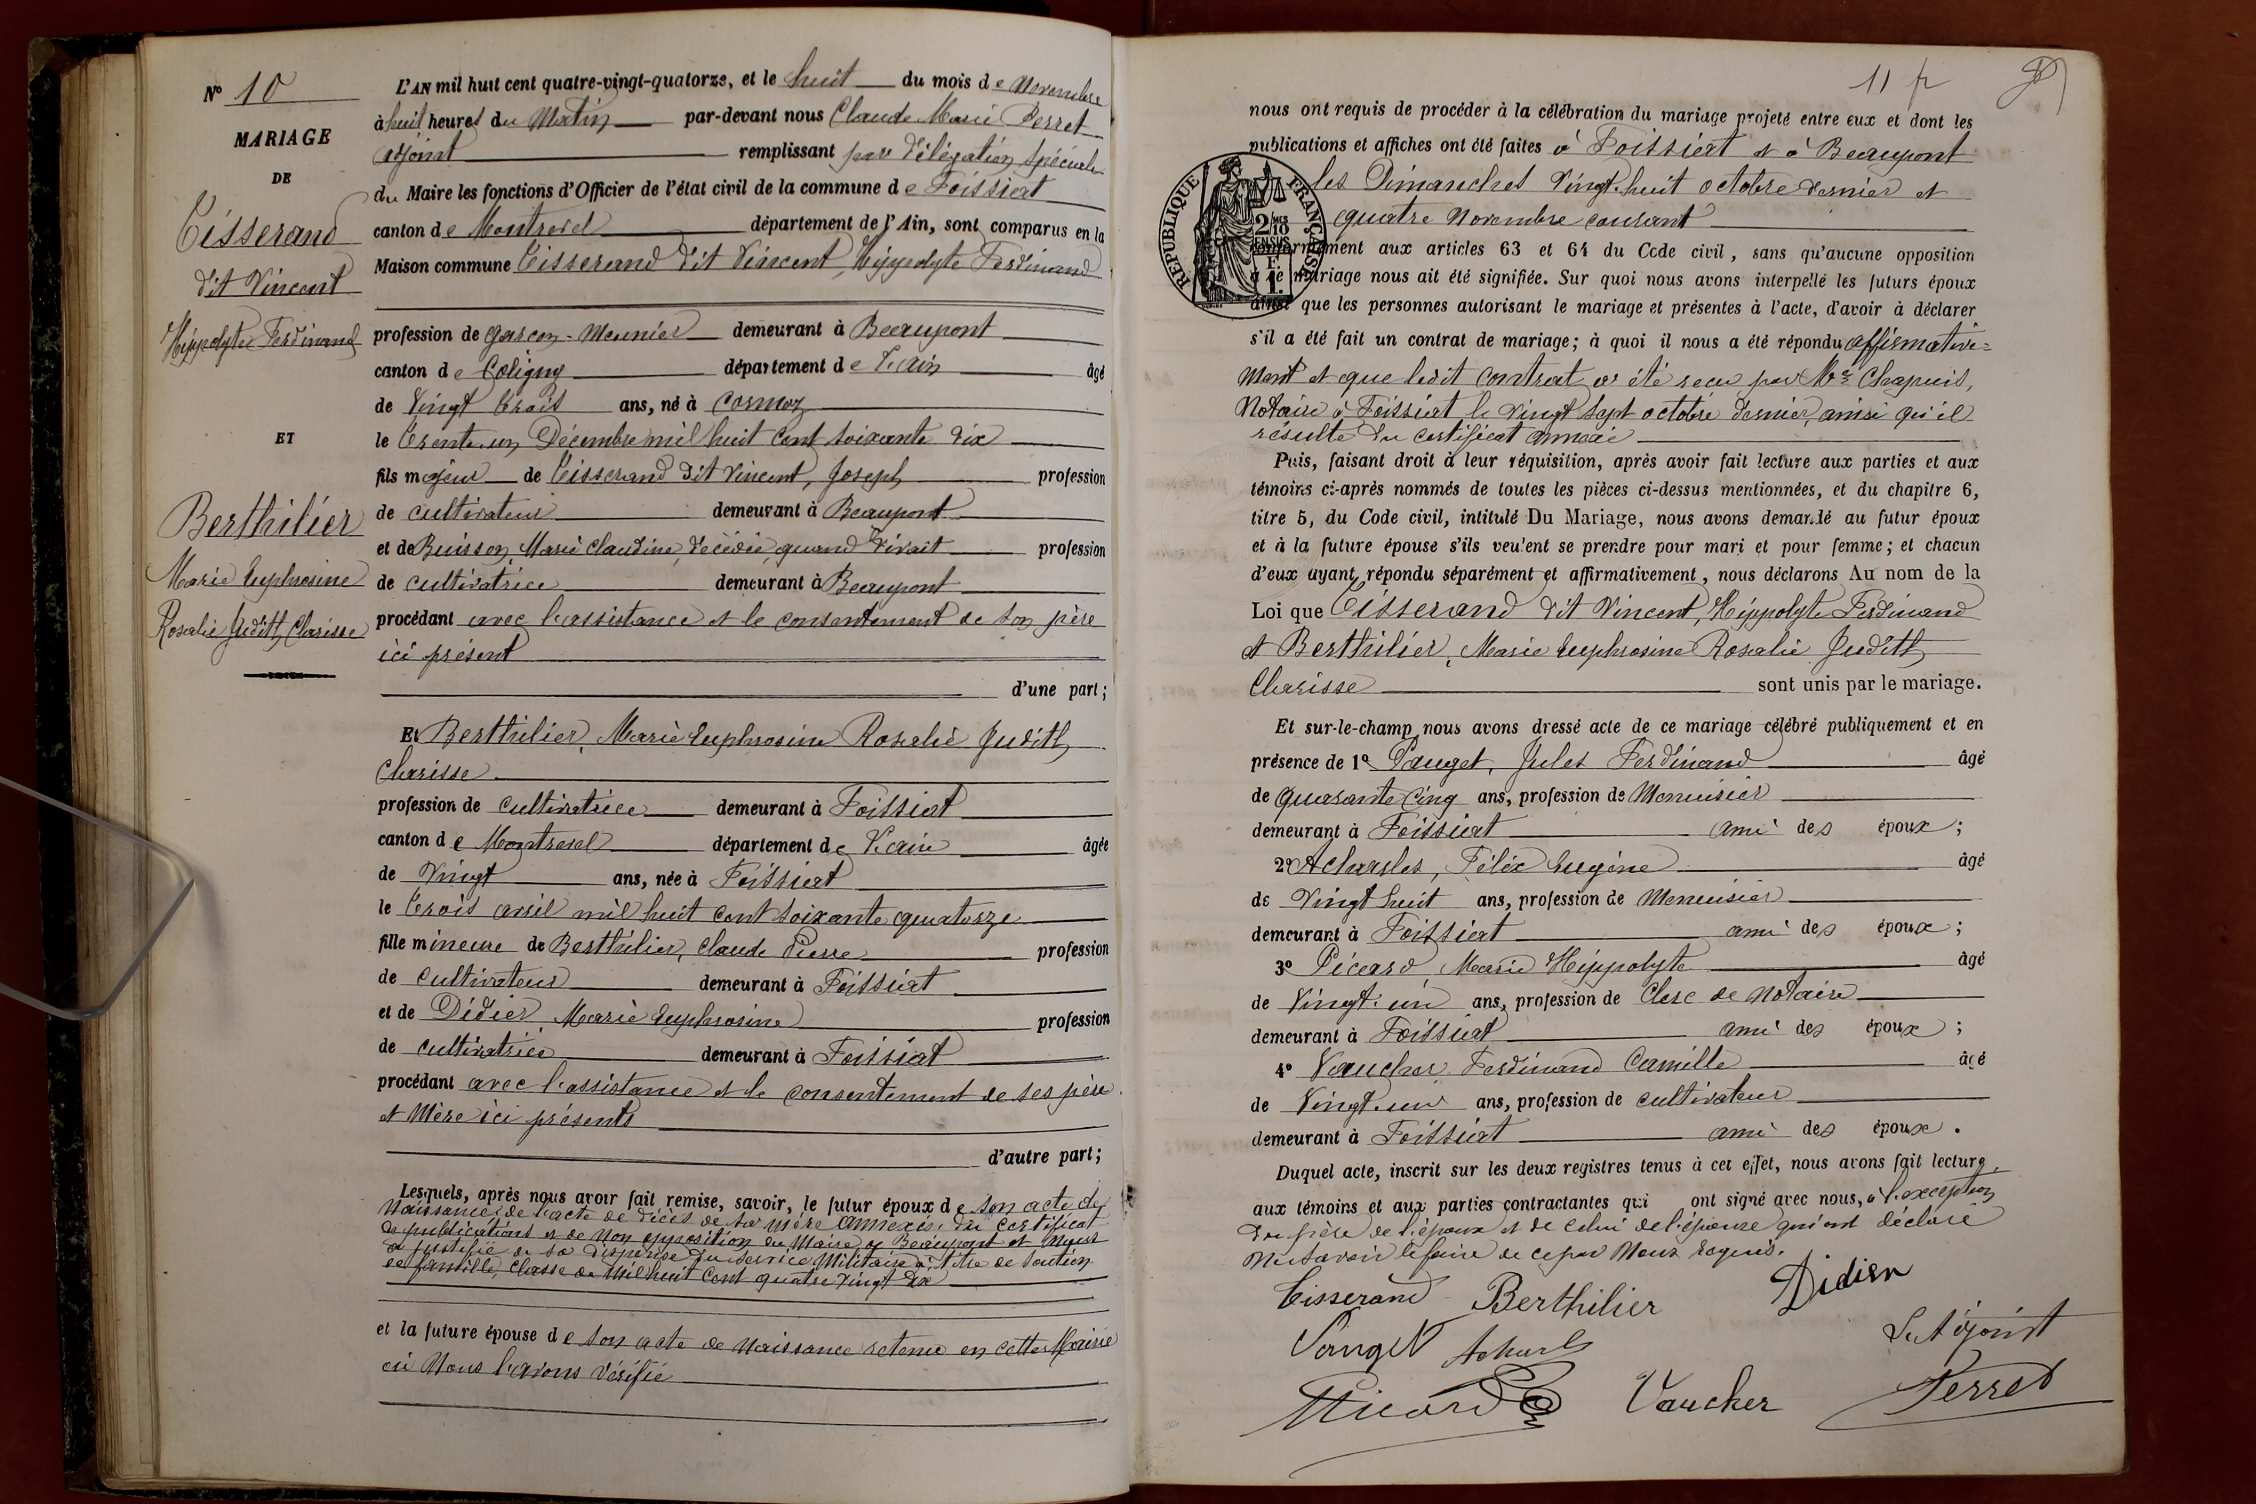 N° 10
MARIAGE
DE
Tisserand
dit Vincent
Hippolyte Ferdinand
ET
Berthilier
Marie Euphrosine
Rosalie Judith Clarisse
L'AN mil huit cent quatre-vingt-quatorze, et le huit du mois de Novembre
à huit heures du Matin par-devant nous Claude Marie Perret
adjoint remplissant par délégation spéciale
du Maire les fonctions d'Officier de l'état civil de la commune de Foissiat
canton de Montrevel département de l'Ain, sont comparus en la
Maison commune Tisserand dit Vincent, Hippolyte Ferdinand
profession de garçon-Meunier demeurant à Beaupont
canton de Coligny département de l'ain âgé
de Vingt trois ans, né à Cormoz
le trente un Décembre mil huit cent soixante dix
fils majeur de Tisserand dit Vincent, Joseph profession
de cultivateur demeurant à Beaupont
et de Buisson, Marie Claudine, décédée, quand vivait profession
de cultivatrice demeurant à Beaupont
procédant avec l'assistance et le consentement de son père
ici présent
d'une part;
Et Berthilier, Marie Euphrosine Rosalie Judith
Clarisse
profession de cultivatrice demeurant à Foissiat
canton de Montrevel département de l'ain âgée
de Vingt ans, née à Foissiat
le trois avril mil huit cent soixante quatorze
fille mineure de Berthilier, Claude Pierre profession
de cultivateur demeurant à Foissiat
et de Didier Marie Euphrosine profession
de cultivatrice demeurant à Foissiat
procédant avec l'assistance et le consentement de ses père
et Mère ici présents
d'autre part;
Lesquels, après nous avoir fait remise, savoir, le futur époux de son acte de
Naissance, de l'acte de décès de sa mère annexés, du certificat
de publications et de non opposition du Maire de Beaupont et nous
a justifié de sa dispense du service Militaire à titre de soutien
de famille, classe de Mil huit cent quatre vingt dix
et la future épouse de son acte de Naissance retenu en cette Mairie
où Nous l'avons vérifié
11 f
nous ont requis de procéder à la célébration du mariage projeté entre eux et dont les
publications et affiches ont été faites à Foissiat et à Beaupont
les Dimanches Vingt-huit octobre dernier et
quatre Novembre courant
RÉPUBLIQUE FRANÇAISE
2/10 EN SUS
1 F.
conformément aux articles 63 et 64 du Code civil, sans qu'aucune opposition
à ce mariage nous ait été signifiée. Sur quoi nous avons interpellé les futurs époux
ainsi que les personnes autorisant le mariage et présentes à l'acte, d'avoir à déclarer
s'il a été fait un contrat de mariage; à quoi il nous a été répondu affirmative=
ment et que ledit contrat a été reçu par Me Chapuis,
Notaire à Foissiat, le vingt sept octobre dernier, ainsi qu'il
résulte du certificat annexé
Puis, faisant droit à leur réquisition, après avoir fait lecture aux parties et aux
témoins ci-après nommés de toutes les pièces ci-dessus mentionnées, et du chapitre 6,
titre 5, du Code civil, intitulé Du Mariage, nous avons demandé au futur époux
et à la future épouse s'ils veulent se prendre pour mari et pour femme; et chacun
d'eux ayant répondu séparément et affirmativement, nous déclarons Au nom de la
Loi que Tisserand dit Vincent, Hippolyte Ferdinand
et Berthilier, Marie Euphrosine Rosalie Judith
Clarisse sont unis par le mariage.
Et sur-le-champ nous avons dressé acte de ce mariage célébré publiquement et en
présence de 1° Pauget, Jules Ferdinand âgé
de quarante cinq ans, profession de Menuisier
demeurant à Foissiat ami des époux;
2° Acharles, Félix Eugène âgé
de Vingt huit ans, profession de Menuisier
demeurant à Foissiat ami des époux;
3° Picard, Marie Hippolyte âgé
de Vingt un ans, profession de Clerc de Notaire
demeurant à Foissiat ami des époux;
4° Vaucher Ferdinand Camille âgé
de Vingt-un ans, profession de cultivateur
demeurant à Foissiat ami des époux.
Duquel acte, inscrit sur les deux registres tenus à cet effet, nous avons fait lecture
aux témoins et aux parties contractantes qui ont signé avec nous, à l'exception
du père de l'époux et de celui de l'épouse qui ont déclaré
ne savoir le faire de ce par Nous Requis.
Tisserand Berthilier Didier
Pauget Acharles Le Adjoint
Picard Vaucher Perret